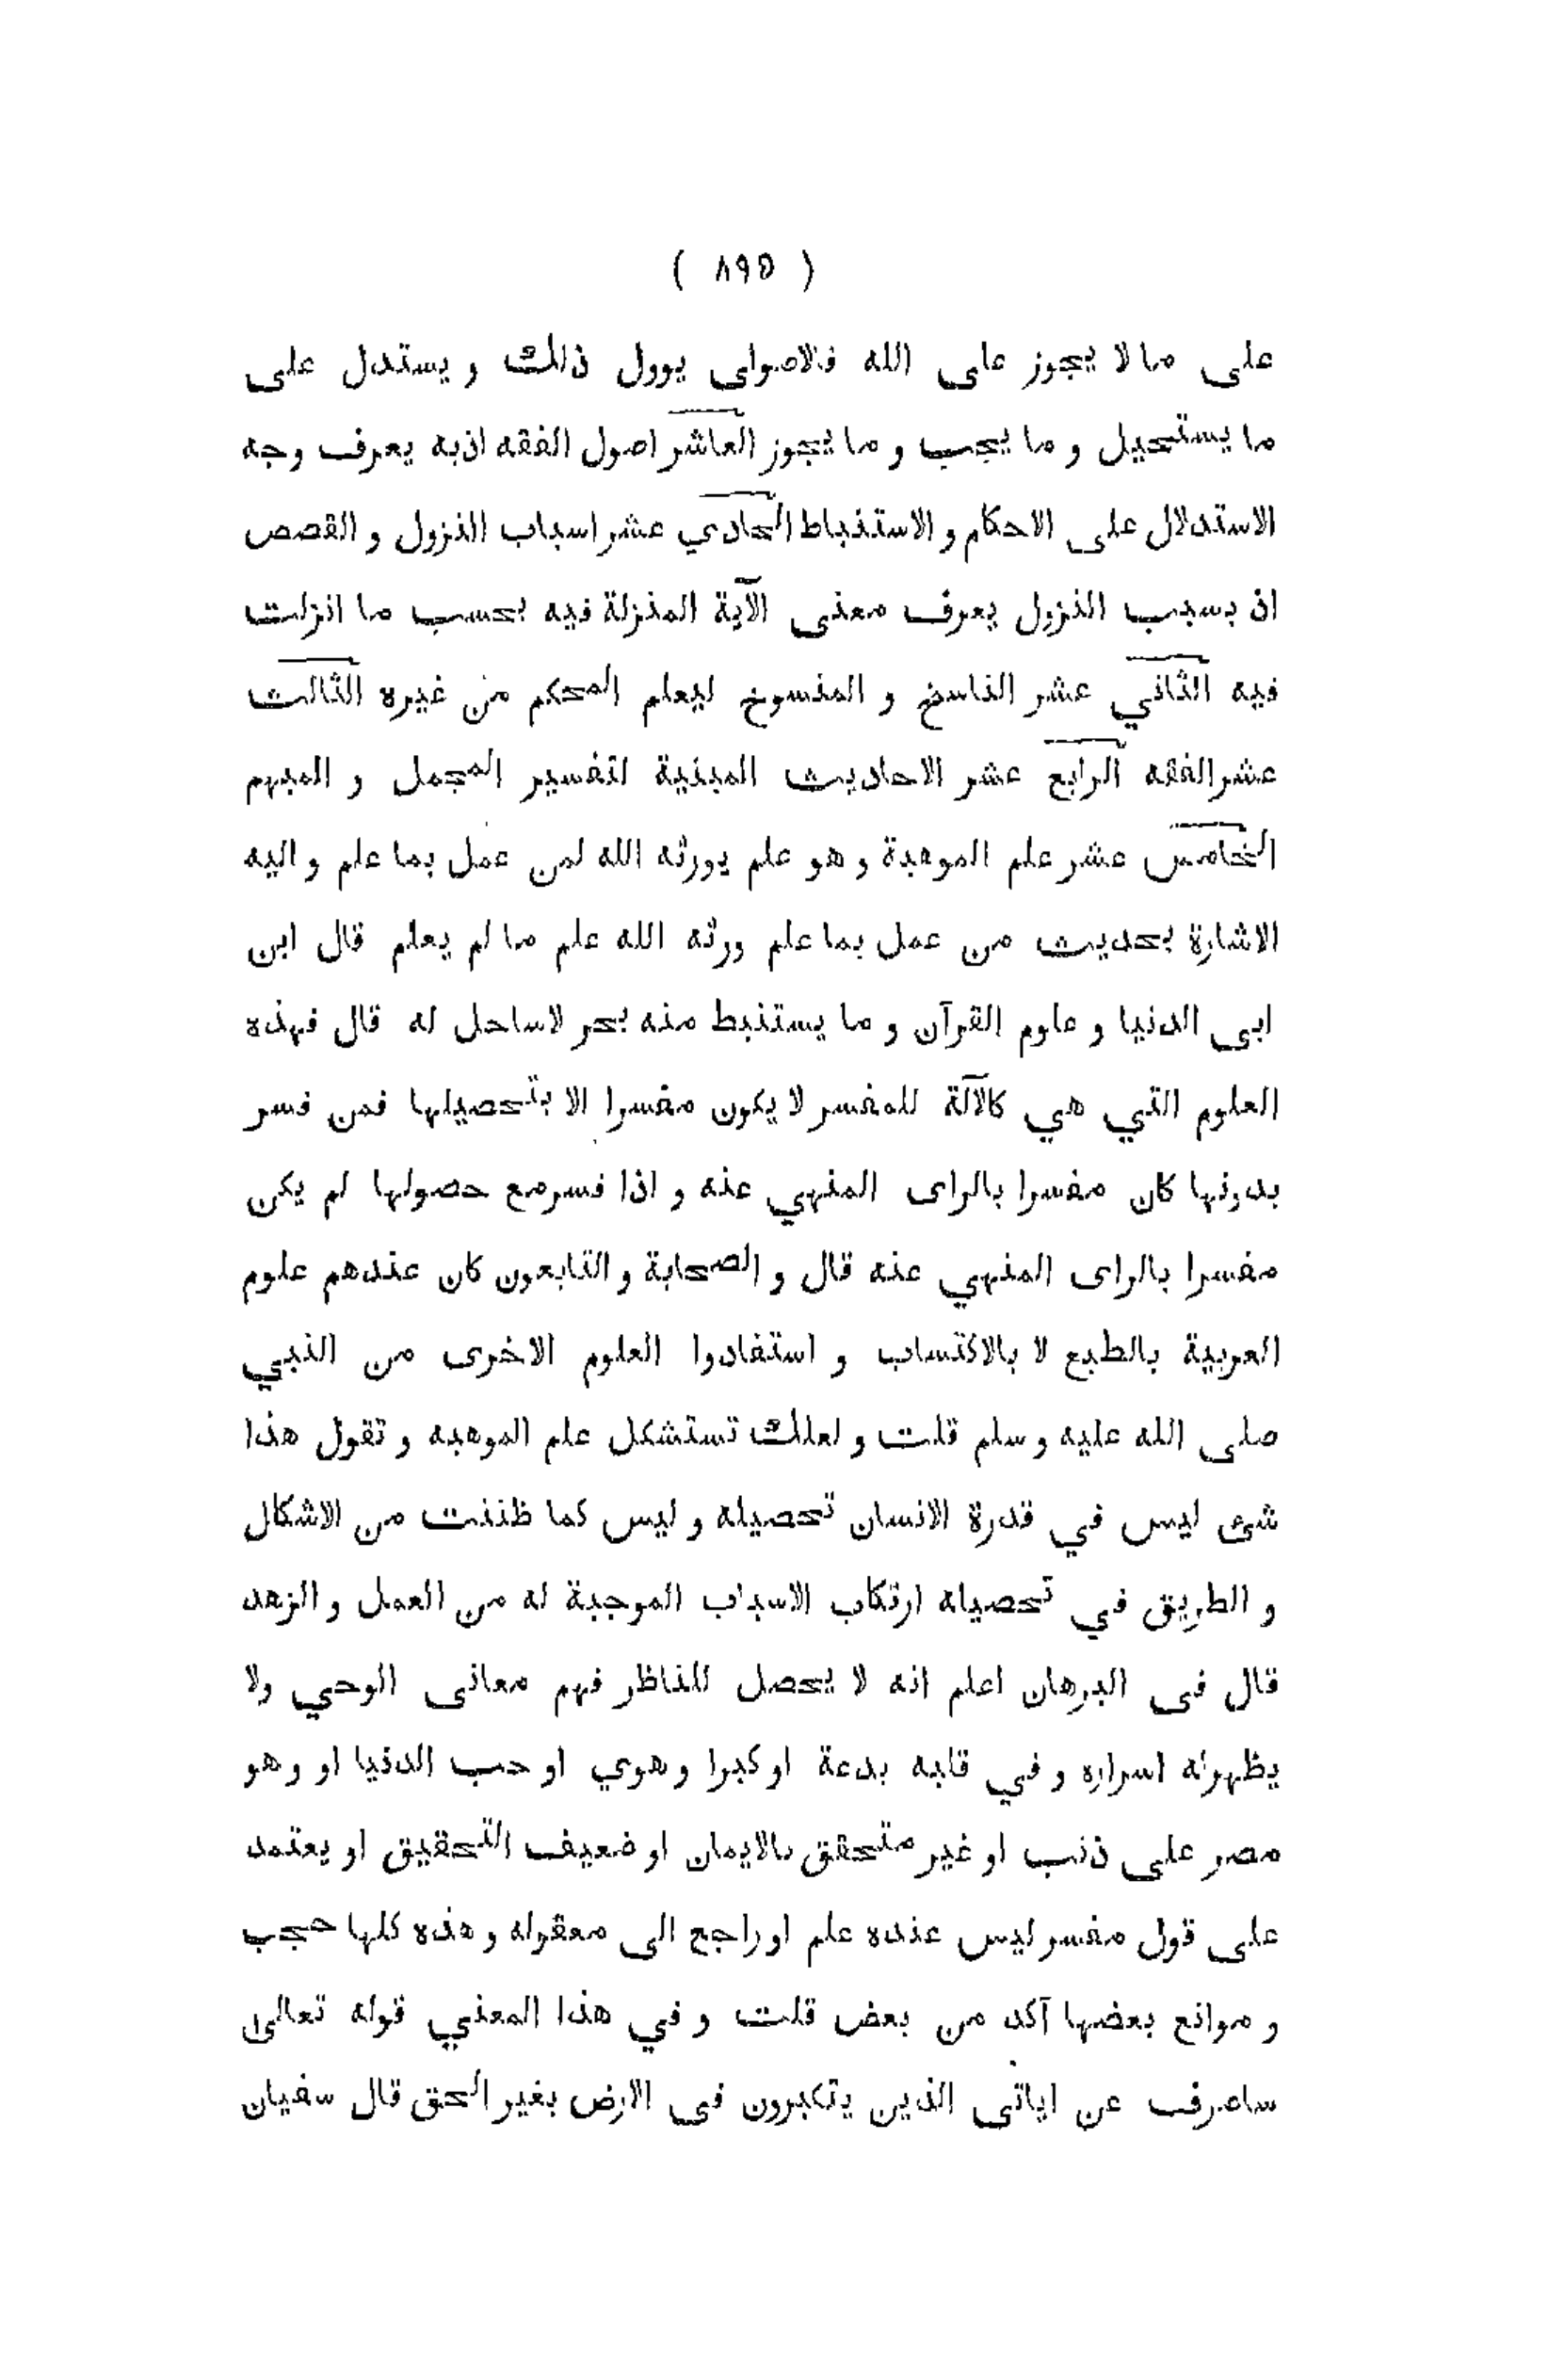 ( ٨٩٥ )
على ما لا يجوز على الله فالاصولى يوول ذلك و يستدل على
ما يستحيل و ما يجب و ما يجوز العاشر اصول الفقه اذ به يعرف وجه
الاستدلال على الاحكام و الاستنباط الحادي عشر اسباب النزول و القصص
اذ بسبب النزول يعرف معنى الآية المنزلة فيه بحسب ما انزلت
فيه الثاني عشر الناسخ و المنسوخ ليعلم المحكم من غيره الثالث
عشر الفقه الرابع عشر الاحاديث المبنية لتفسير المجمل و المبهم
الخامس عشر علم الموهبة و هو علم يورثه الله لمن عمل بما علم و اليه
الاشارة بحديث من عمل بما علم ورثه الله علم ما لم يعلم قال ابن
ابى الدنيا و علوم القرآن و ما يستنبط منه بحر لا ساحل له قال فهذه
العلوم التي هي كالآلة للمفسر لا يكون مفسرا الا بتحصيلها فمن فسر
بدونها كان مفسرا بالراى المنهي عنه و اذا فسر مع حصولها لم يكن
مفسرا بالراى المنهي عنه قال و الصحابة و التابعون كان عندهم علوم
العربية بالطبع لا بالاكتساب و استفادوا العلوم الاخرى من النبي
صلى الله عليه و سلم قلت و لعلك تستشكل علم الموهبه و تقول هذا
شئ ليس في قدرة الانسان تحصيله و ليس كما ظننت من الاشكال
و الطريق في تحصيله ارتكاب الاسباب الموجبة له من العمل و الزهد
قال فى البرهان اعلم انه لا يحصل للناظر فهم معانى الوحي ولا
يظهر له اسراره و في قلبه بدعة او كبرا و هوي او حب الدنيا او و هو
مصر على ذنب او غير متحقق بالايمان او ضعيف التحقيق او يعتمد
على قول مفسر ليس عنده علم او راجع الى معقوله و هذه كلها حجب
و موانع بعضها آكد من بعض قلت و في هذا المعني قوله تعالى
ساصرف عن اياتى الذين يتكبرون فى الارض بغير الحق قال سفيان